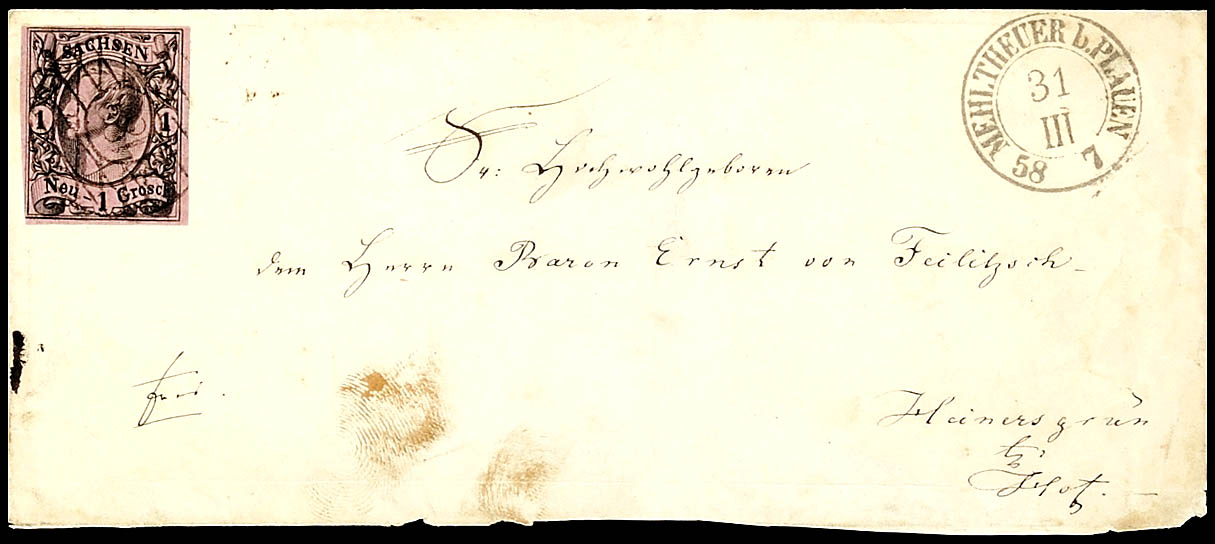 SACHSEN
1 1
Neu - 1 Grosch
MEHLTHEUER b. PLAUEN
31
III
58 7
Sr: Hochwohlgeboren
dem Herrn Baron Ernst von Feilitzsch
frei.
Heinersgrün
b/
Hof.